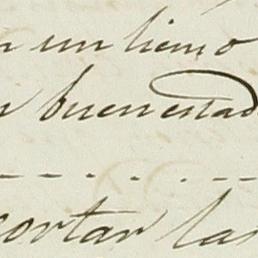 n un lieno
n buen estad
cortar las